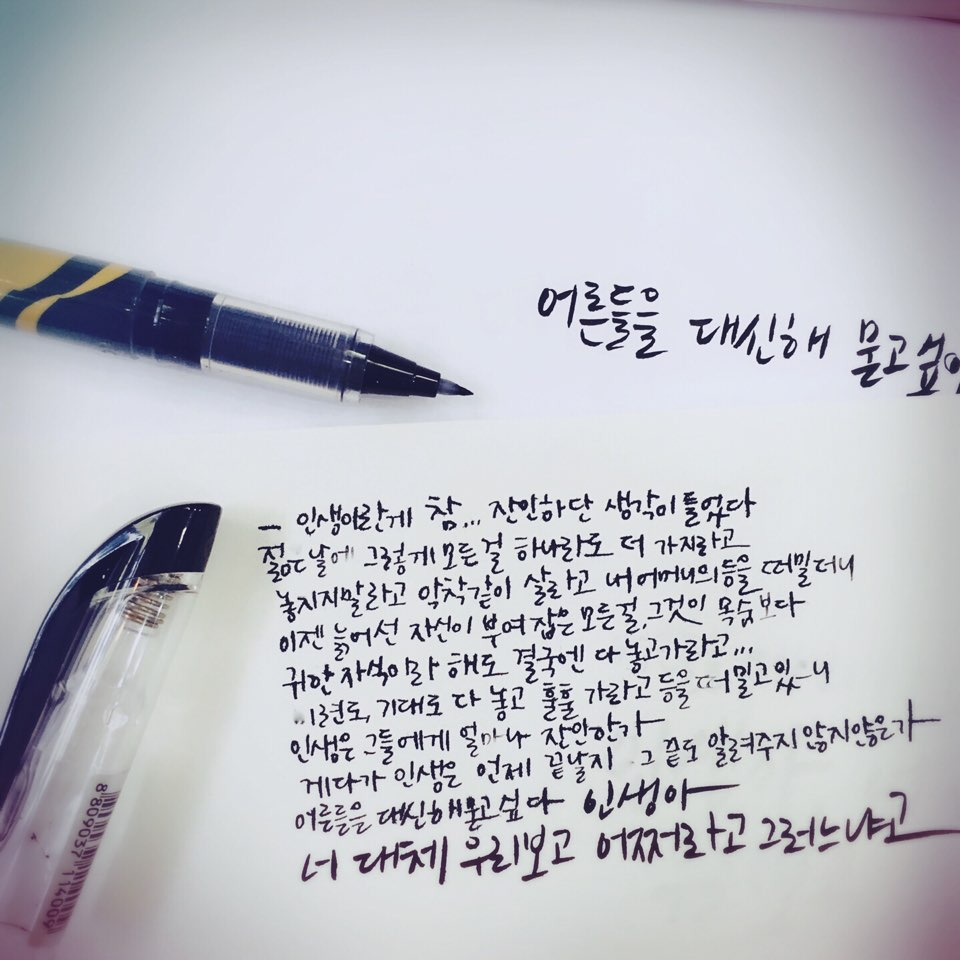 어른들을 대신해 묻고싶
- 인생이란게 참... 잔인하단 생각이 들었다
젊은날에 그렇게 모든걸 하나라도 더 가지라고
놓치지말라고 악착같이 살라고 내 어머니의 등을 떠밀더니
이젠 늙어선 자신이 부여잡은 모든걸, 그것이 목숨보다
귀한 자식이라 해도 결국엔 다 놓고가라고...
미련도, 기대도 다 놓고 훌훌 가라고 등을 떠밀고있으니
인생은 그들에게 얼마나 잔인한가
게다가 인생은 언제 끝날지 그 끝도 알려주지 않지않은가
어른들을 대신해 묻고싶다 인생아
너 대체 우리보고 어쩌라고 그러느냐고
8809037114009